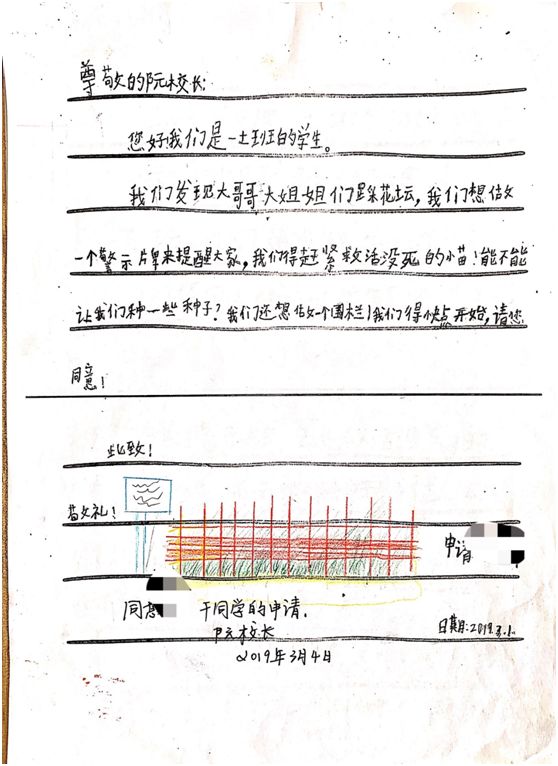 尊敬的阮校长:
您好!我们是一土班的学生。
我们发现大哥哥大姐姐们踩花坛,我们想做
一个警示牌来提醒大家,我们得赶紧救活没死的小苗!能不能
让我们种一些种子?我们还想做一个围栏!我们得快点开始,请您
同意!
此致!
敬礼!
申请
同意 干同学的申请.
阮校长
日期:2019.3.1.
2019年3月4日